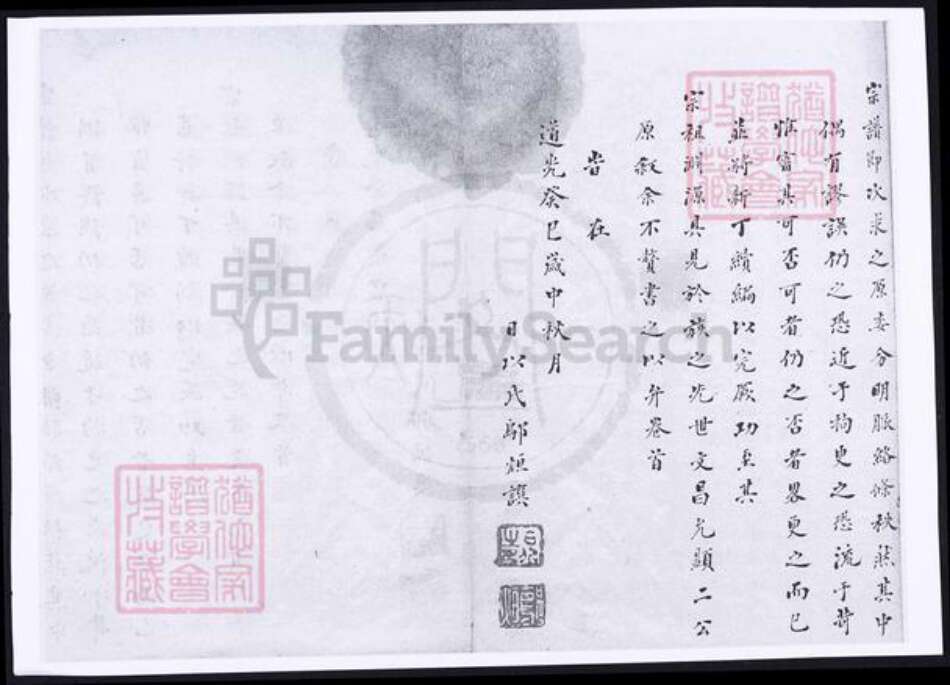 宗譜即次求之原委分明脈絡條秩然其中
偶有謬誤仍之恐近于拘更之恐流于
惟審其可否可者仍之否者畧更之而已
茲將新丁續編以完厥功至其
宗祖淵源具見於族之先世文昌允顯二公
原敘余不贅書之以弁卷首
旹在
道光癸巳歲中秋月
日以氏鄢烜譔
猶他家
譜學會
攷藏
猶他家
譜學會
攷藏
FamilySearch